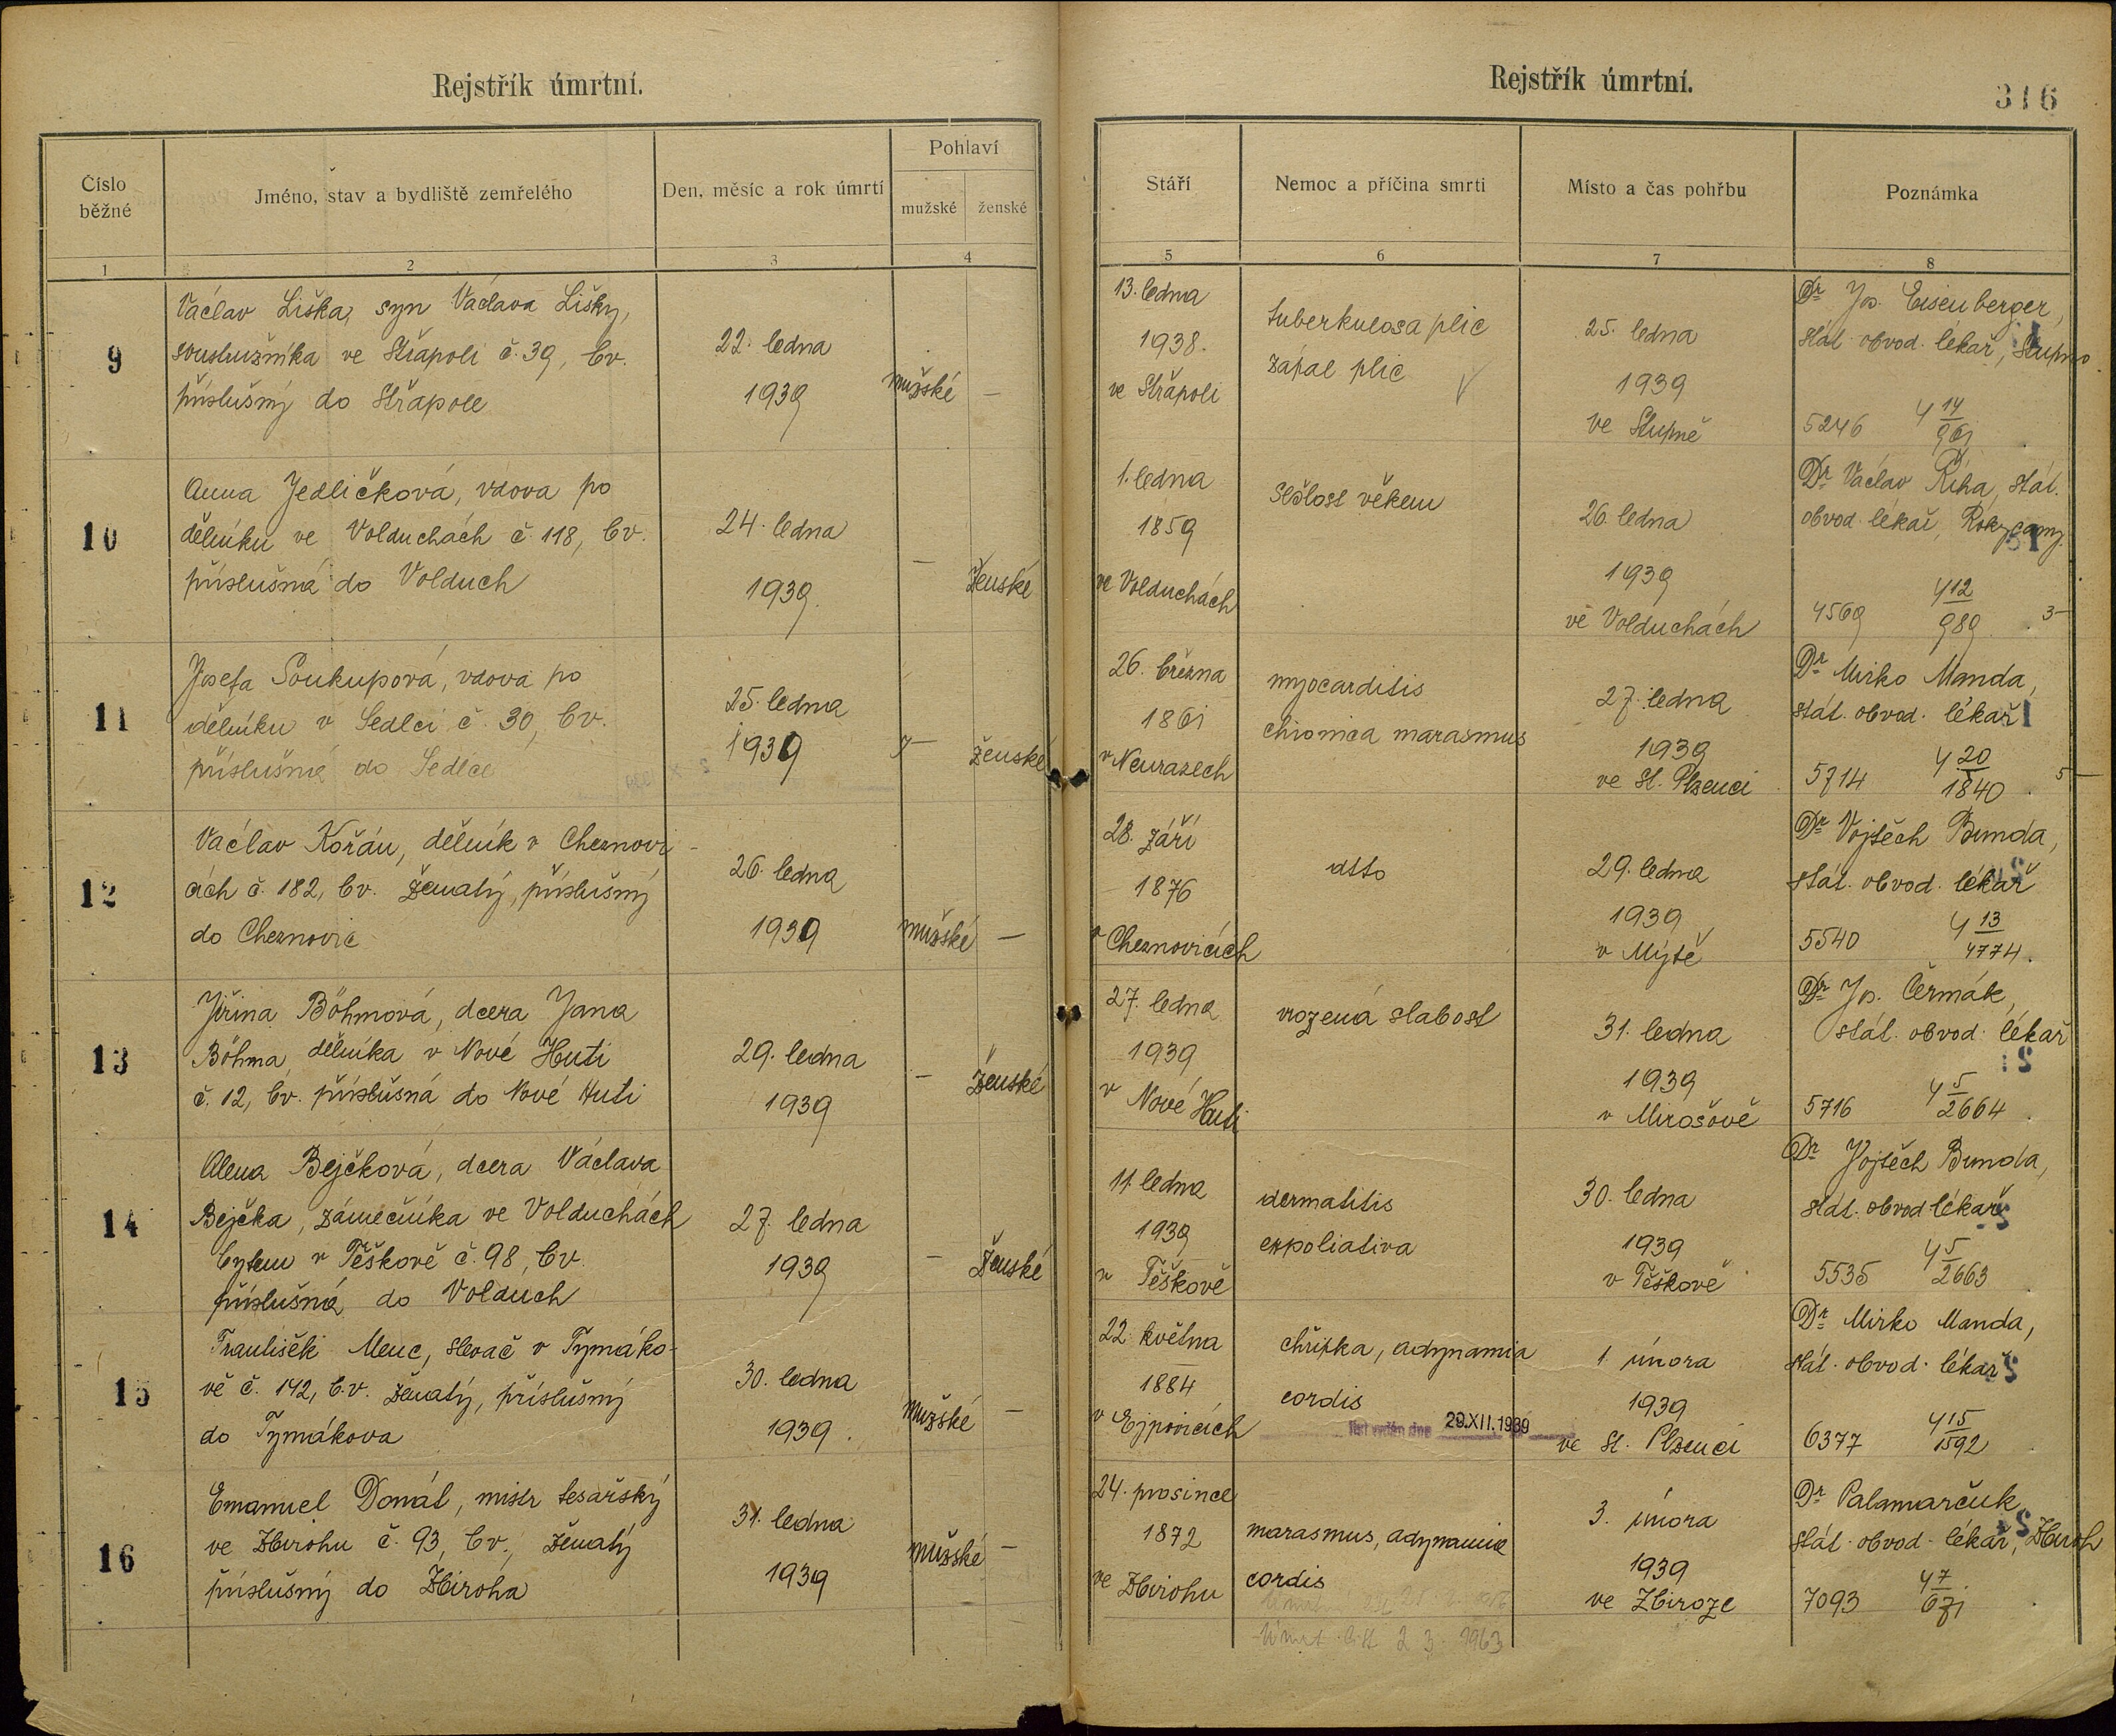 Rejstřík úmrtní.
Číslo běžné
Jméno, stav a bydliště zemřelého
Den, měsíc a rok úmrtí
Pohlaví
mužské
ženské
1
2
3
4
Rejstřík úmrtní.
316
Stáří
Nemoc a příčina smrti
Místo a čas pohřbu
Poznámka
5
6
7
8
9
Václav Liška, syn Václava Lišky,
soustružníka ve Střapoli č. 39, bv.
příslušný do Střapole
22. ledna
1939
mužské
—
13. ledna
1938.
ve Střapoli
tuberkulosa plic
zápal plic
25. ledna
1939
ve Stupně
Dr Jos. Eisenberger,
stát. obvod. lékař, Stupno
5246
4 14/961
10
Anna Jedličková, vdova po
dělníku ve Volduchách č. 118, bv.
příslušná do Volduch
24. ledna
1939.
—
ženské
1. ledna
1859
ve Volduchách
sešlost věkem
26. ledna
1939
ve Volduchách
Dr Václav Říha, stát.
obvod. lékař, Rokycany.
4569
4 12/989
3-
11
Josefa Soukupová, vdova po
dělníku v Sedlci č. 30, bv.
příslušná do Sedlce
25. ledna
1939
ženské
26. března
1861
v Neurazech
myocarditis
chronica marasmus
27. ledna
1939
ve St. Plzenci
Dr Mirko Manda,
stát. obvod. lékař
5714
4 20/1840
5-
12
Václav Kořán, dělník v Cheznovi-
cích č. 182, bv. ženatý, příslušný
do Cheznovic
26. ledna
1939
mužské
—
28. září
1876
v Cheznovicích
dtto
29. ledna
1939
v Mýtě
Dr Vojtěch Bunda,
stát. obvod. lékař
5540
4 13/4774.
13
Jiřina Böhmová, dcera Jana
Böhma, dělníka v Nové Huti
č. 12, bv. příslušná do Nové Huti
29. ledna
1939
—
ženské
27. ledna
1939
v Nové Huti
vrozená slabost
31. ledna
1939
v Mirošově
Dr Jos. Čermák,
stát. obvod. lékař
5716
4 5/2664
14
Alena Bejčková, dcera Václava
Bejčka, zámečníka ve Volduchách
bytem v Těškově č. 98, bv.
příslušná do Volduch
27. ledna
1939
—
ženské
11. ledna
1939
v Těškově
dermatitis
expoliativa
30. ledna
1939
v Těškově
Dr Vojtěch Bunda,
stát. obvod lékař
5535
4 5/2663
15
František Menc, slevač v Tymáko-
vě č. 142, b.v. ženatý, příslušný
do Tymákova
30. ledna
1939.
mužské
—
22. května
1884
v Ejpovicích
chřipka, adynamia
cordis
list vydán dne 29.XII.1939
1. února
1939
ve St. Plzenci
Dr Mirko Manda,
stát. obvod. lékař
6377
4 15/1592
16
Emanuel Donát, mistr tesařský
ve Zbirohu č. 93, bv., ženatý
příslušný do Zbiroha
31. ledna
1939
mužské
—
24. prosince
1872
ve Zbirohu
marasmus, adynamia
cordis
Úmrt. list 2 3. 1963
3. února
1939
ve Zbiroze
Dr Palamarčuk
stát. obvod. lékař, Zbiroh
7093
4 7/671